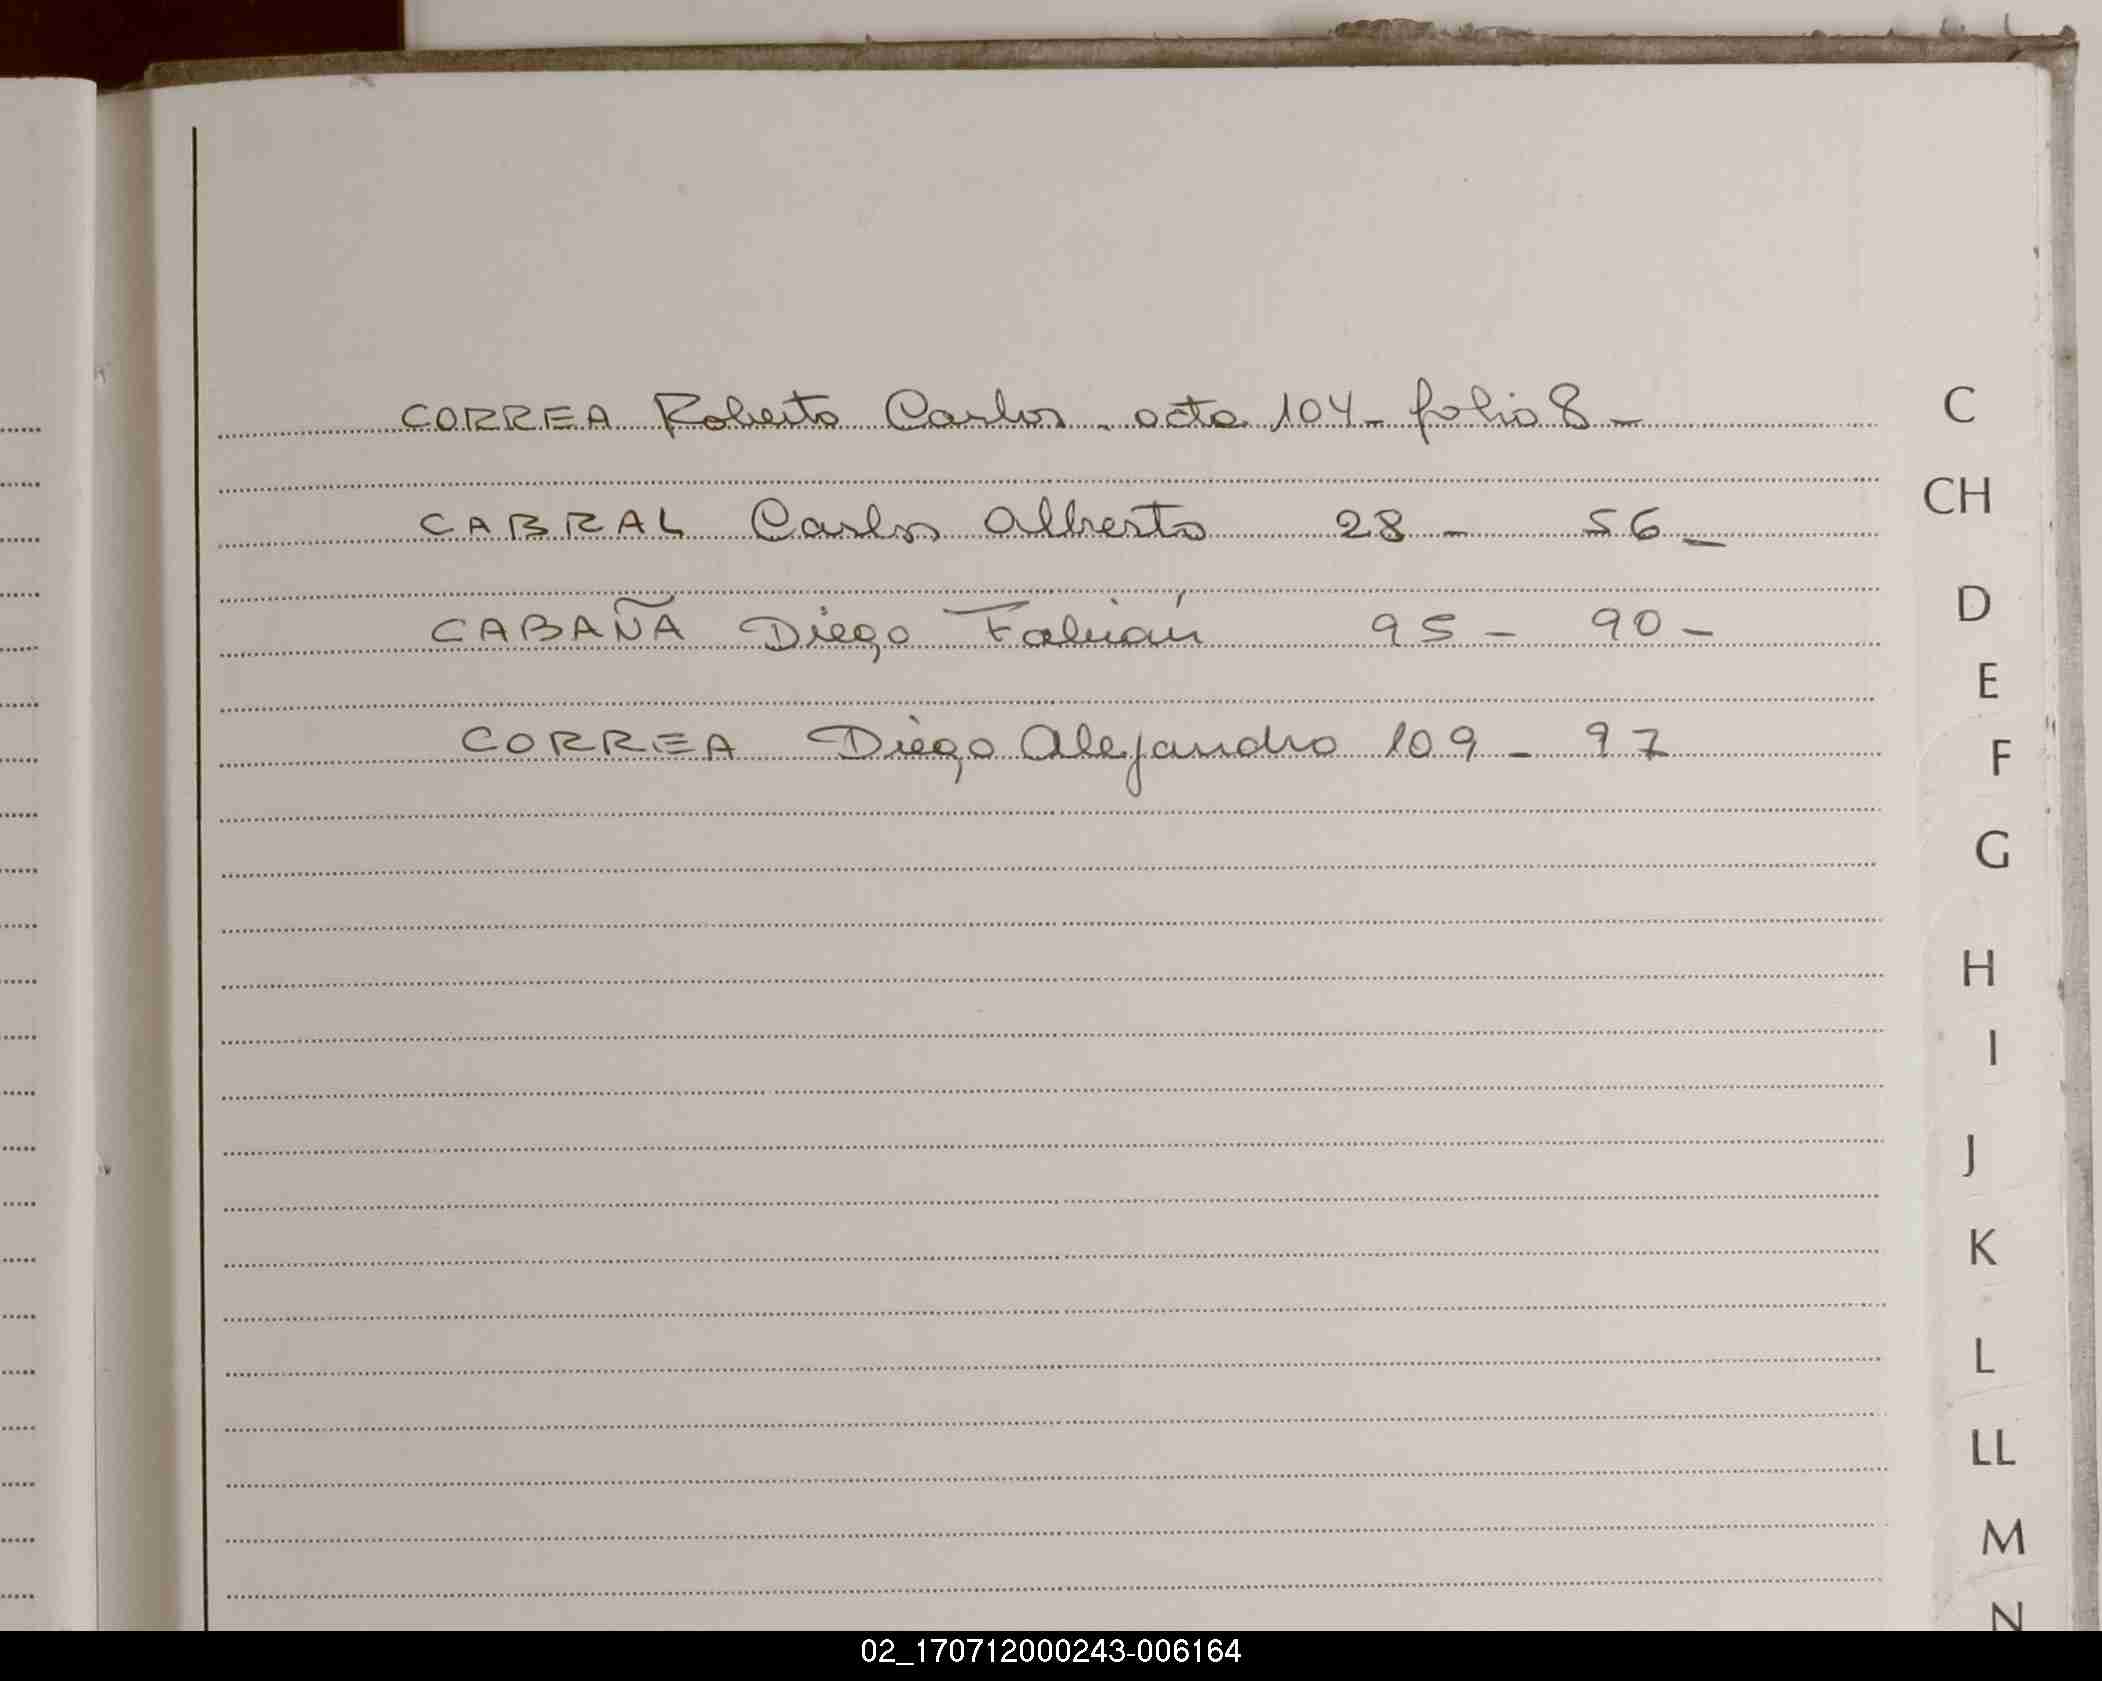 CORREA Roberto Carlos. acta 104- folio 8-
CABRAL Carlos Alberto 28- 56-
CABAÑA Diego Fabián 95- 90-
CORREA Diego Alejandro 109- 97
C
CH
D
E
F
G
H
I
J
K
L
LL
M
N
02_170712000243-006164